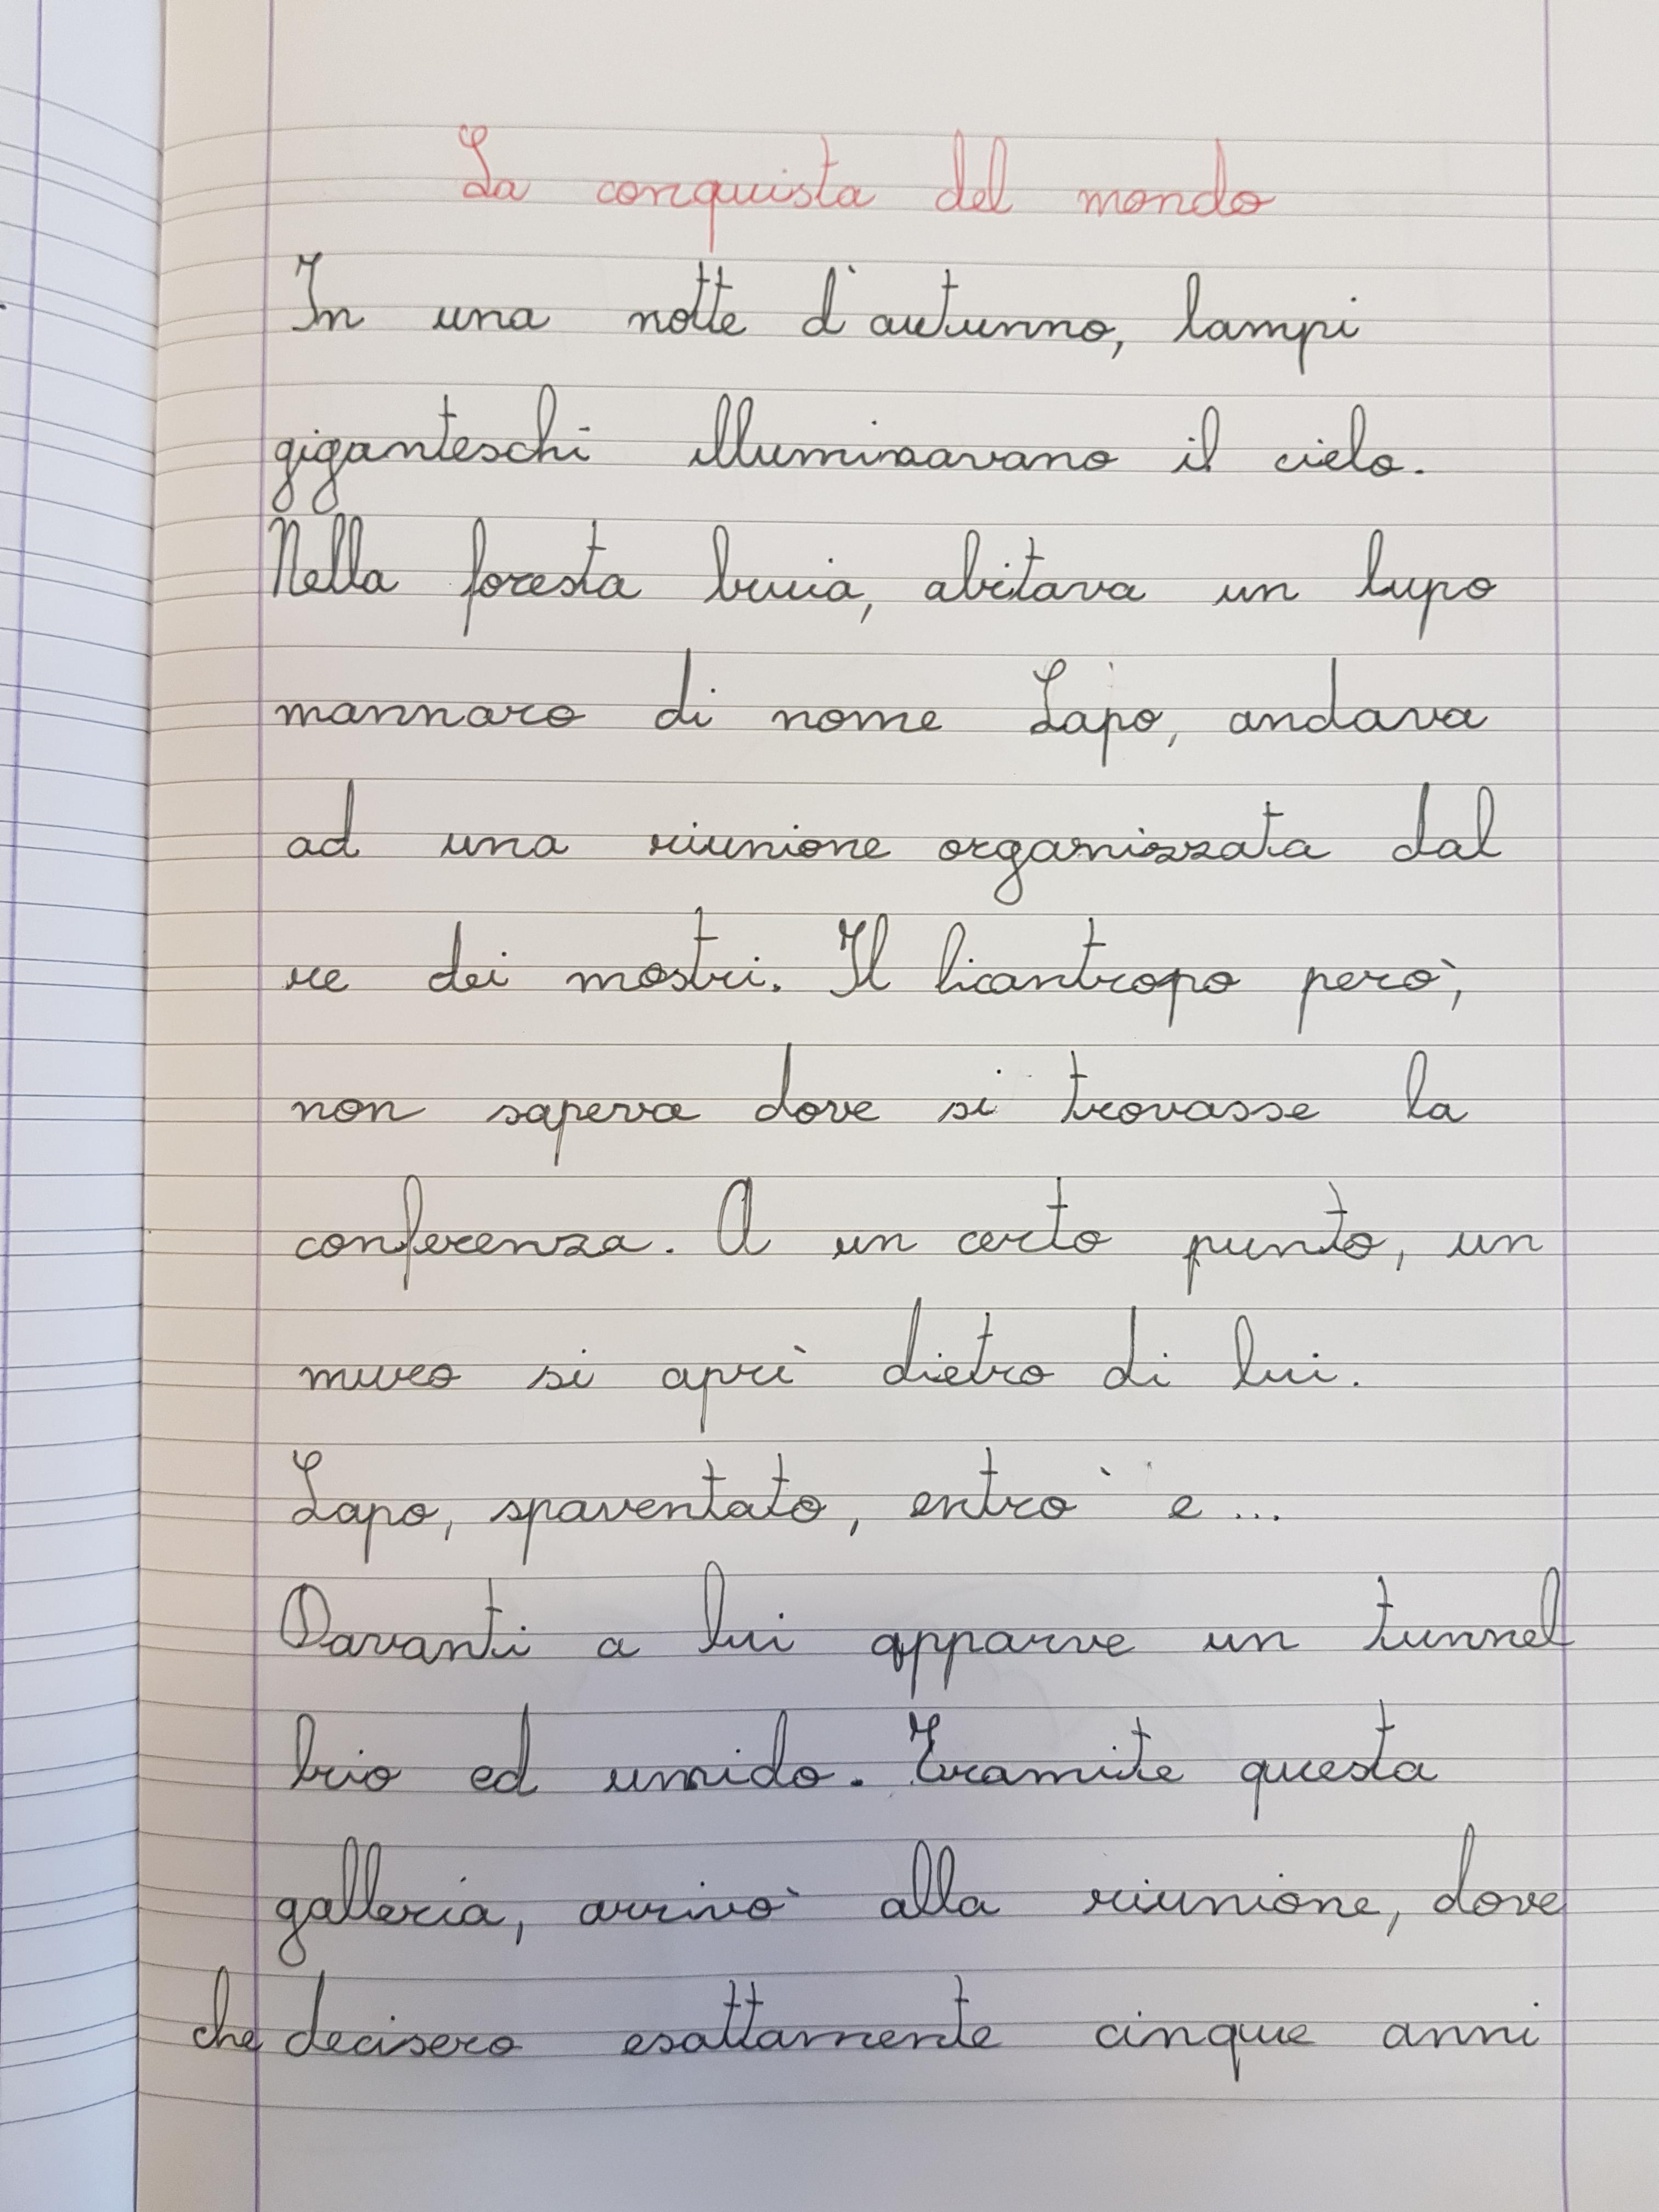 La conquista del mondo
In una notte d'autunno, lampi
giganteschi illuminavano il cielo.
Nella foresta buia, abitava un lupo
mannaro di nome Lapo, andava
ad una riunione organizzata dal
re dei mostri. Il licantropo però,
non sapeva dove si trovasse la
conferenza. A un certo punto, un
muro si aprì dietro di lui.
Lapo, spaventato, entrò e ...
Davanti a lui apparve un tunnel
buio ed umido. Tramite questa
galleria, arrivò alla riunione, dove
che decisero esattamente cinque anni